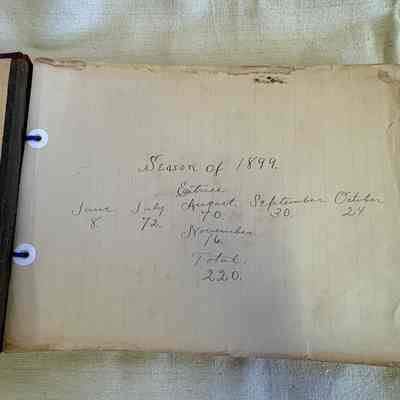 Season of 1899.
June July August September October
8 72. 70. 30. 24
November
16.
Total.
220.